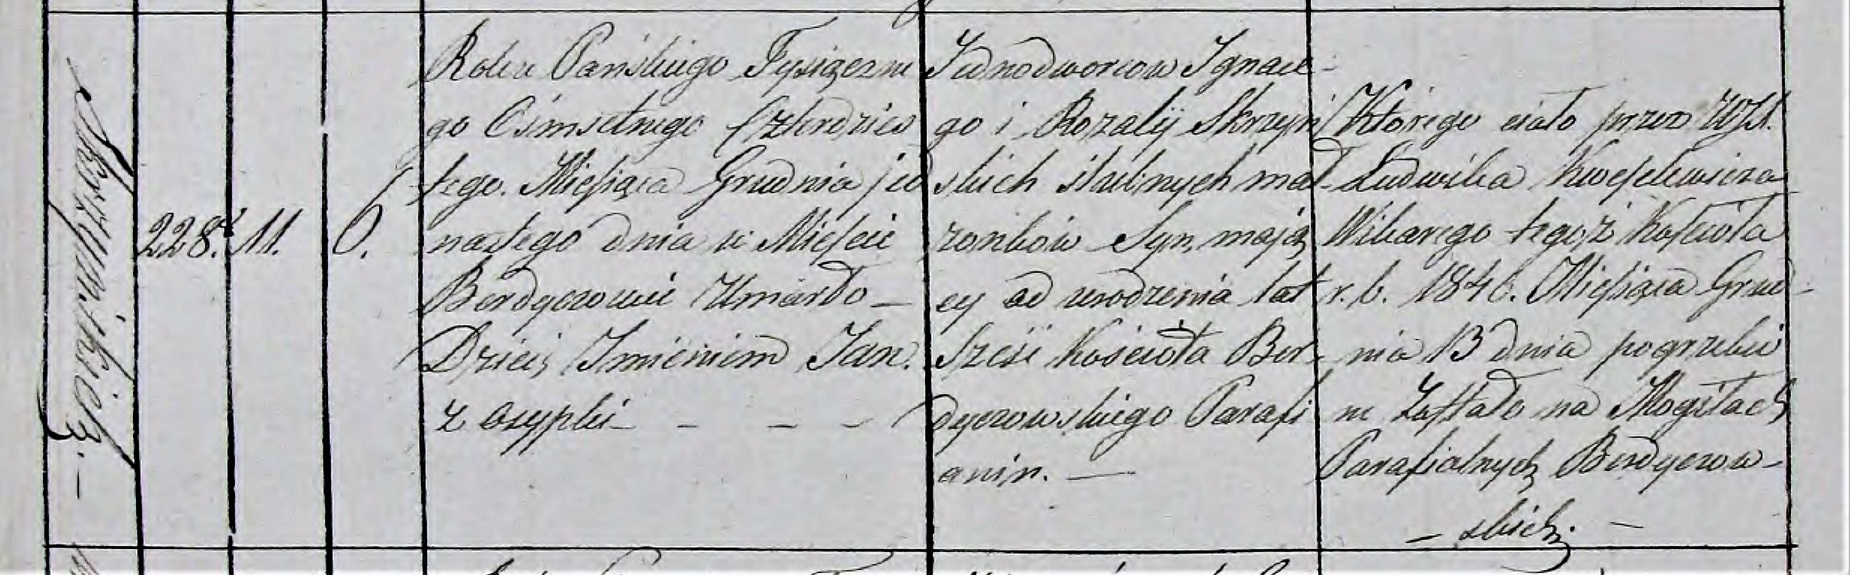 Skrzyńskich. —
228. 11. 6.
Roku Pańskiego Tysięczne
go Ośmsetnego Czterdzies
tego. Miesiąca Grudnia jed
nastego dnia w Mieście
Berdyczowie Umarło —
Dziecię Imieniem Jan.
z Osypki — — — —
Jednodworcow Ignace-
go i Rozalij Skrzyń
skich ślubnych mał-
żonków Syn, mają
cy od urodzenia lat
Sześć Kościoła Ber-
dyczowskiego Parafi
anin. —
Którego ciało przez WJX.
Ludwika
Wikarego tegoż Kościoła
r. b. 1846. Miesiąca Grud-
nia 13 dnia pogrzebio
ne Zostało na Mogiłach
Parafialnych Berdyczow-
— skich. —